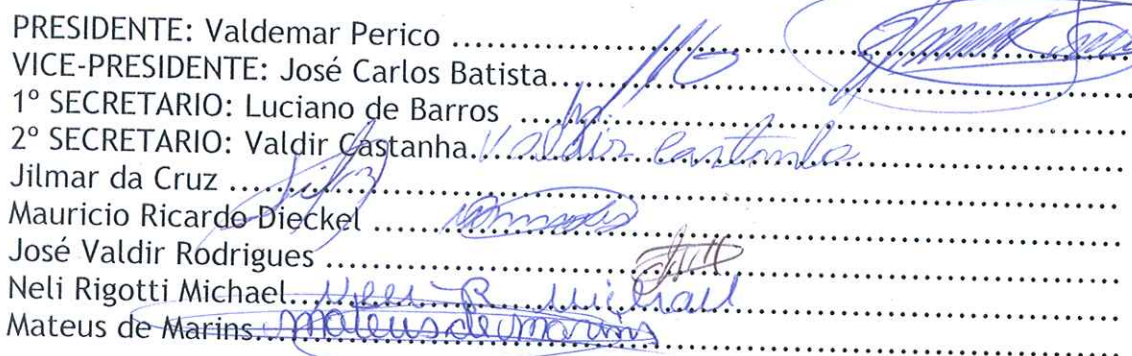 PRESIDENTE: Valdemar Perico ........................................
VICE-PRESIDENTE: José Carlos Batista........................................
1º SECRETARIO: Luciano de Barros ........................................
2º SECRETARIO: Valdir Castanha........ Valdir Castanha
Jilmar da Cruz ........................................
Mauricio Ricardo Dieckel ........................................
José Valdir Rodrigues ........................................
Neli Rigotti Michael........ Neli R Michael
Mateus de Marins........ Mateus de Marins